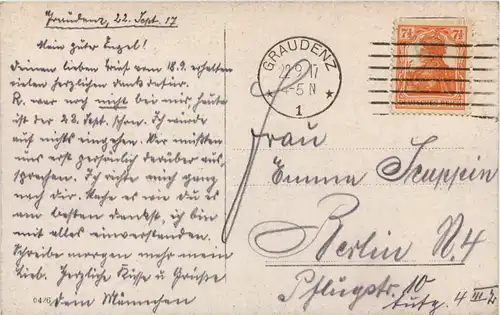 Graudenz, 22. Sept. 17
Mein guter Engel!
Deinen lieben Brief vom 18.9. erhalten
vielen herzlichen Dank dafür.
R. war noch nicht bei mir, heute
ist der 22. Sept. schon. Ich würde
auf nichts eingehen. Wir müßten
uns erst persönlich darüber aus,
sprechen. Ich richte mich ganz
nach dir. Mache es wie du es
am besten denkst, ich bin
mit alles einverstanden.
Schreibe morgen mehr mein
Lieb. Herzliche Küsse u Grüße
Dein Männchen
GRAUDENZ
22.9.17
4-5 N
* 1 *
7½ 7½
Frau
Emma Scuppin
Berlin N.4
Pflugstr. 10
4 III